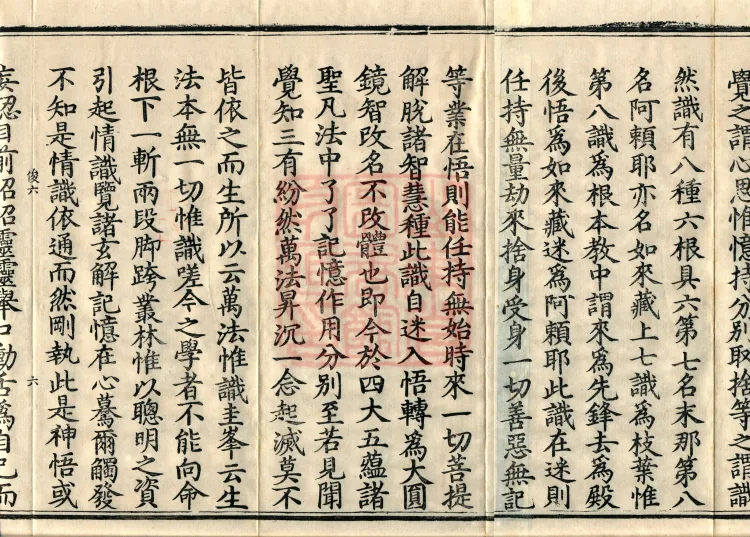 覺之謂心思惟憶持分別取捨等之謂識
然識有八種六根具六第七名末那第八
名阿賴耶亦名如來藏上七識爲枝葉惟
第八識爲根本教中謂來爲先鋒去爲殿
後悟爲如來藏迷爲阿賴耶此識在迷則
任持無量劫來捨身受身一切善惡無記
等業在悟則能任持無始時來一切菩提
解脫諸智慧種此識自迷入悟轉爲大圓
鏡智改名不改體也即今於四大五蘊諸
聖凡法中了了記憶作用分别至若見聞
覺知三有紛然萬法昇沉一念起滅莫不
皆依之而生所以云萬法惟識圭峯云生
法本無一切惟識嗟今之學者不能向命
根下一斬兩段脚跨叢林惟以聰明之資
引起情識覽諸玄解記憶在心驀爾觸發
不知是情識依通而然剛執此是神悟或
俊六 六
妄認目前昭昭靈靈舉口動舌爲自己而